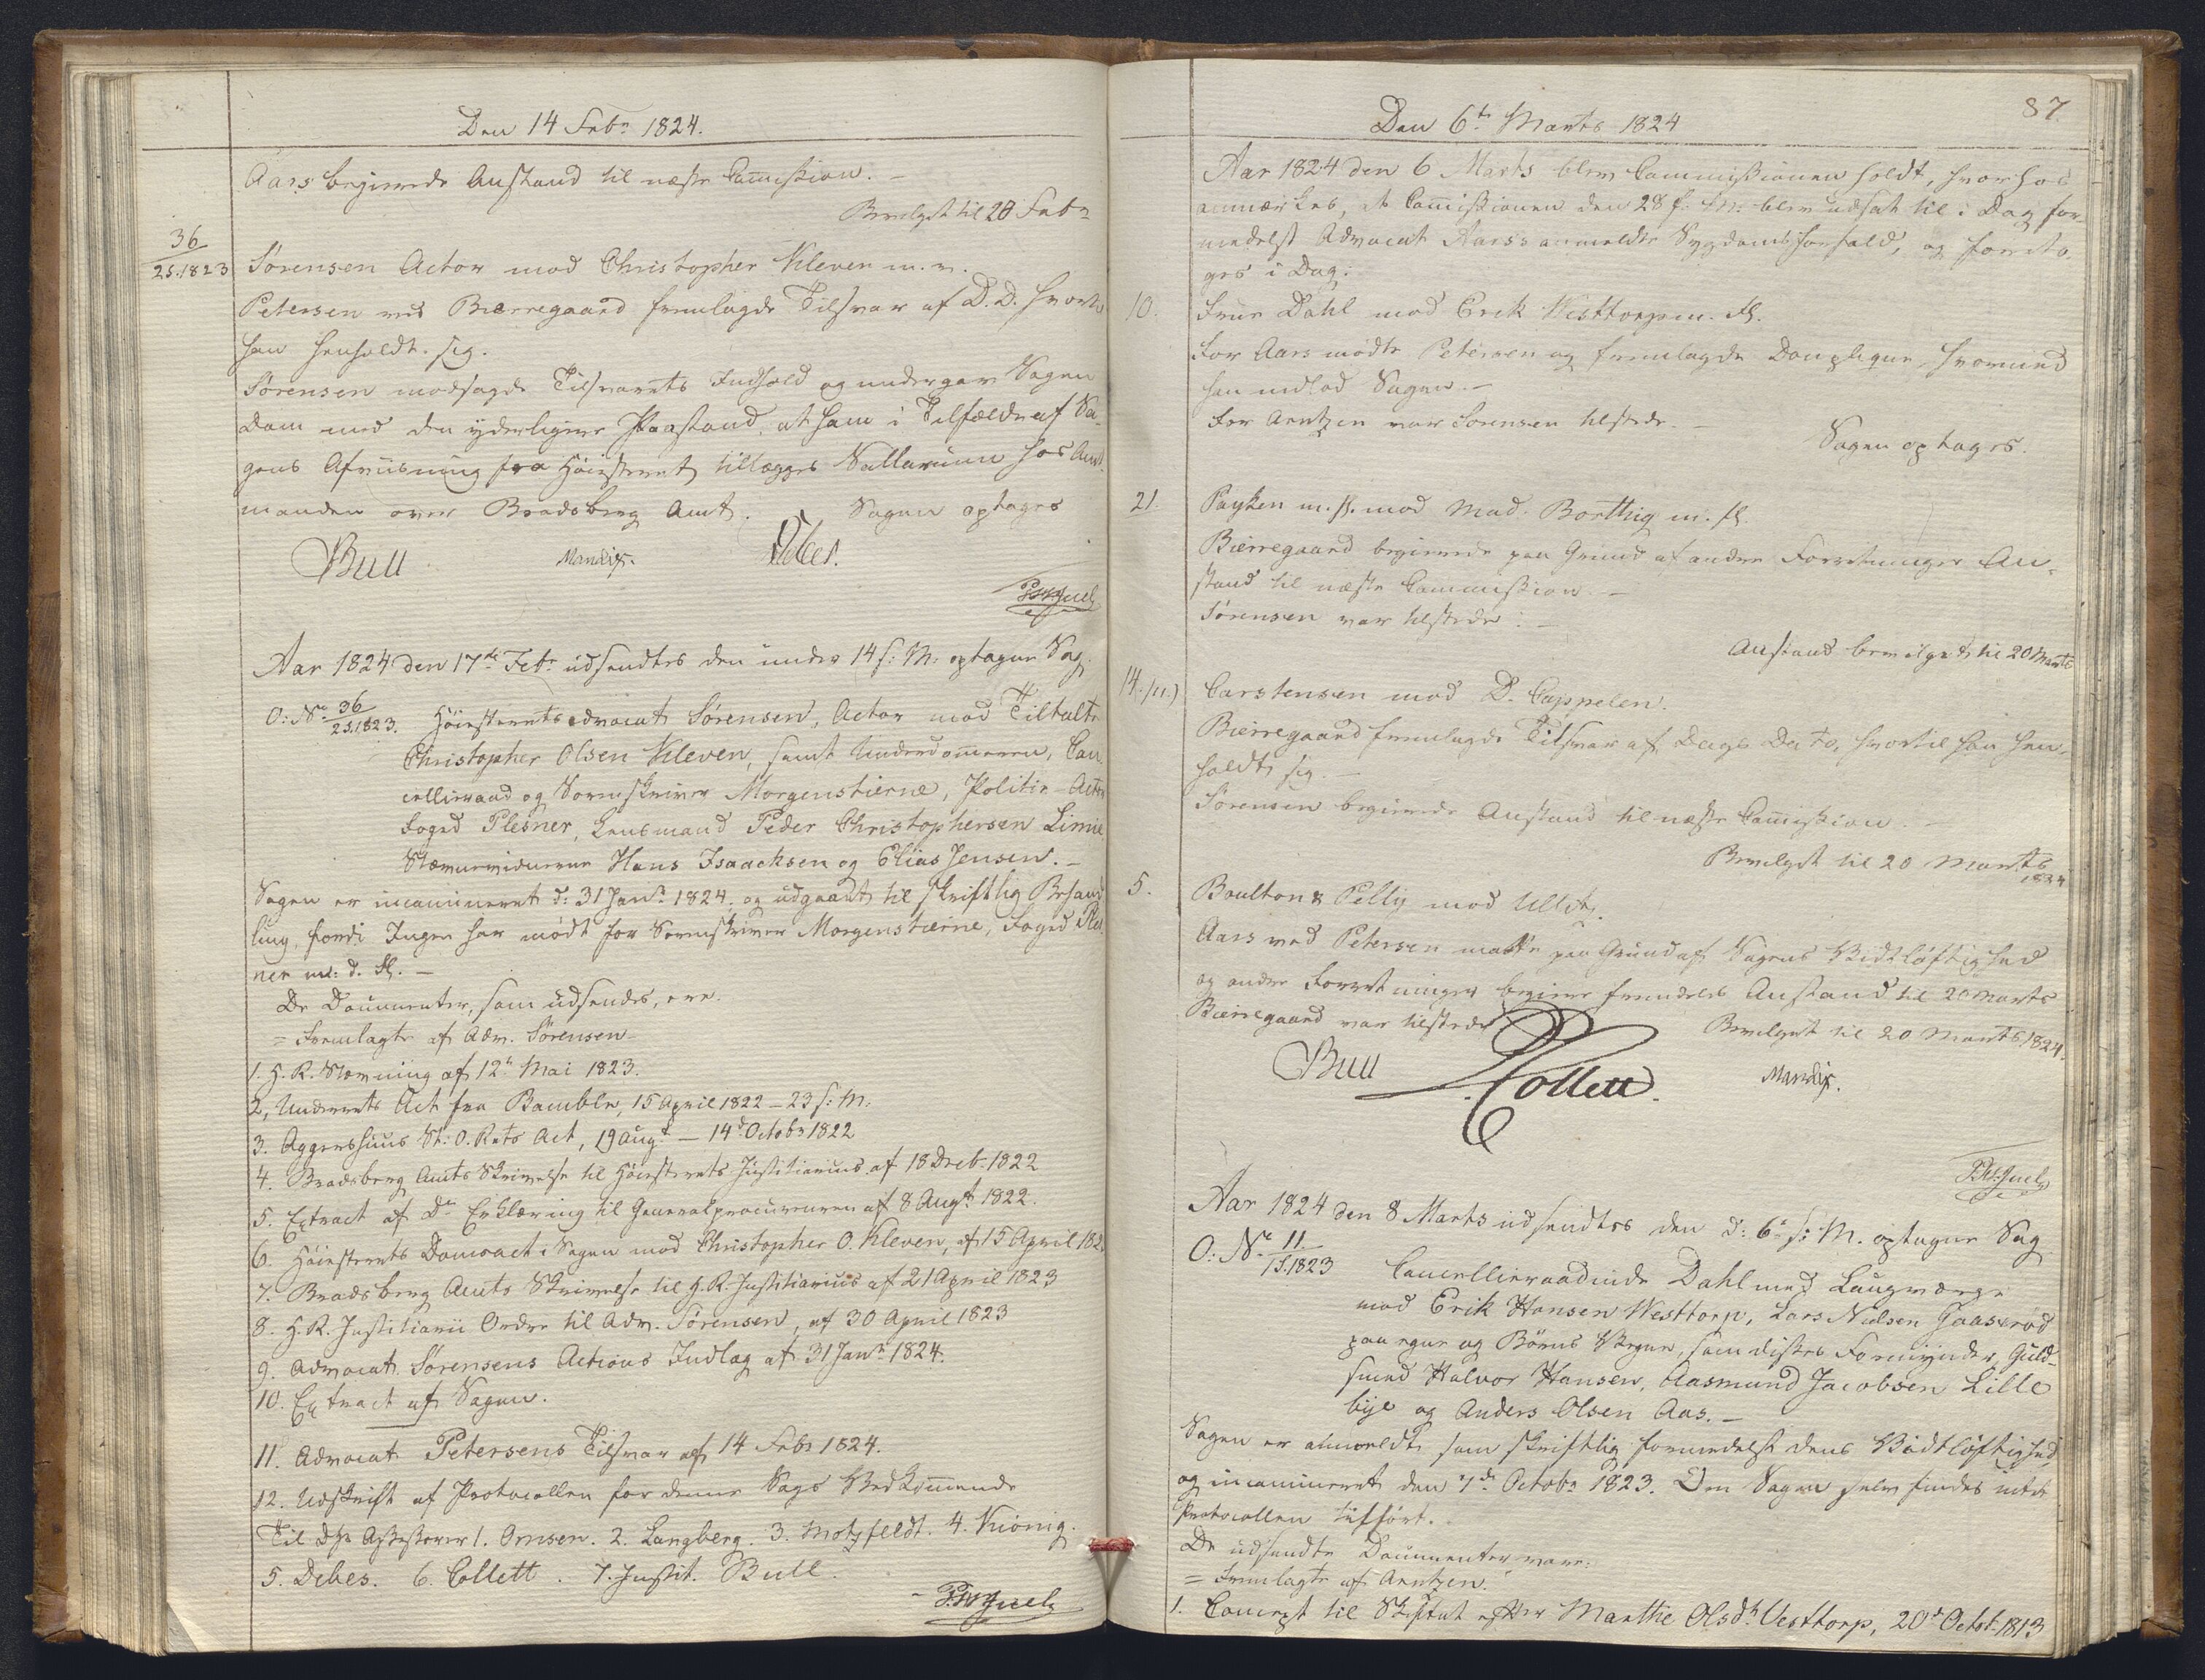 Den 14 Febr 1824.
Aars begierede Anstand til næste Commission. -
Bevilget til 28 Febr
36
2S.1823
Sörensen Actor mod Christopher Kleven m. v.
Petersen ved Bierregaard fremlagde Tilsvar af D. D. hvortil
han henholdt sig.
Sörensen modsagde Tilsvarets Indhold og undergav Sagen
Dom med den yderligere Paastand, at ham i Tilfælde af Sa-
gens Afviisning fra Höiesteret tillægges Sallarium hos Amt-
manden over Bradsberg Amt.
Sagen optages
Bull Mandix. Debes.
PMJuel
Aar 1824 den 17de Febr udsendtes den under 14 s: M: optagne Sag
O: No 36
2S.1823.
Höiesteretsadvocat Sörensen, Actor mod Tiltalte
Christopher Olsen Kleven, samt Underdommeren, Can-
celliraad og Sorenskriver Morgenstierne, Politie-Actor
Foged Plesner, Lensmand Peder Christophersen Limie
Stævnevidnerne Hans Isaachsen og Elias Jensen. -
Sagen er incamineret d: 31 Janr 1824. og udgaaet til skriftlig Behand
ling, fordi Ingen har mødt for Sorenskriver Morgenstierne, Foged Ples
ner m: d. Fl. -
De Documenter, som udsendes, ere.
= Fremlagte af Adv. Sörensen
1. H. R. Stævning af 12te Mai 1823.
2, Underrets Act fra Bamble, 15 April 1822 - 23 s: M:
3. Aggershuus St: O. Rets Act, 19 Augt - 14de Octobr 1822
4. Bradsberg Amts Skrivelse til Höiesterets Justitiarius af 18 Decb. 1822
5. Extract af Do Erklæring til Generalprocureuren af 8 Augt 1822.
6. Höiesterets Domsact i Sagen mod Christopher O. Kleven, af 15 April 182
7. Bradsberg Amts Skrivelse til H. R. Justitiarius af 21 April 1823
8. H. R. Justitiarii Ordre til Adv. Sörensen, af 30 April 1823
9. Advocat Sörensens Actions Indlæg af 31 Janr 1824.
10. Extract af Sagen.
11. Advocat Petersens Tilsvar af 14 Febr 1824.
12. Udskrift af Protocollen for denne Sags Vedkommende
Til Dhr Assessorer 1. Omsen. 2. Langberg. 3. Motzfeldt. 4. Kiönig.
5. Debes. 6. Collett. 7. Justit. Bull.
PMJuel
87
Den 6te Marts 1824
Aar 1824 den 6 Marts blev Commissionen holdt, hvorhos
anmærkes, at Commissionen den 28 f. M: blev udsat til i Dag for-
medelst Advocat Aars's anmeldte Sygdomsforfald, og foreto-
ges i Dag:
10.
Frue Dahl mod Erik Westtorp m. fl.
For Aars mødte Petersen og fremlagde Douplique hvormed
han indlod Sagen. -
For Arntzen var Sörensen tilstede. -
Sagen optages.
21.
Payken m. fl. mod Mad. Borthig m. fl.
Bierregaard begierede paa Grund af andre Forretninger An-
stand til næste Commission -
Sörensen var tilstede. -
Anstand bevilget til 20 Marts
14.
Carstensen mod D. Cappelen.
Bierregaard fremlagde Tilsvar af Dags Dato, hvortil han hen-
holdt sig. -
Sörensen begierede Anstand til næste Commission. -
Bevilget til 20 Marts
1824
5.
Boulton & Pelly mod Ullit.
Aars ved Petersen maatte paa Grund af Sagens Vidtløftighed
og andre Forretninger begiere fremdeles Anstand til 20 Marts
Bierregaard var tilstede
Bevilget til 20 Marts 1824.
Bull Collett. Mandix.
PMJuel
Aar 1824 den 8 Marts udsendtes den d: 6te s: M. optagne Sag
O: No 11.
1S.1823
Cancelliraadinde Dahl med Laugværge
mod Erik Hansen Westtorp, Lars Nielsen Gaaserød
paa egne og Börns Vegne, som disses Formynder, Guld-
smed Halvor Hansen, Aasmund Jacobsen Lille
bye og Anders Olsen Aas. -
Sagen er anmeldt som skriftlig formedelst dens Vidtløftighed
og incamineret den 7de Octobr 1823. Om Sagen selv findes intet
Protocollen tilført.
De udsendte Documenter vare:
= Fremlagte af Arntzen.
1. Concept til Skiftet efter Marthe Olsdtr Vesttorp, 20de Octob. 1813